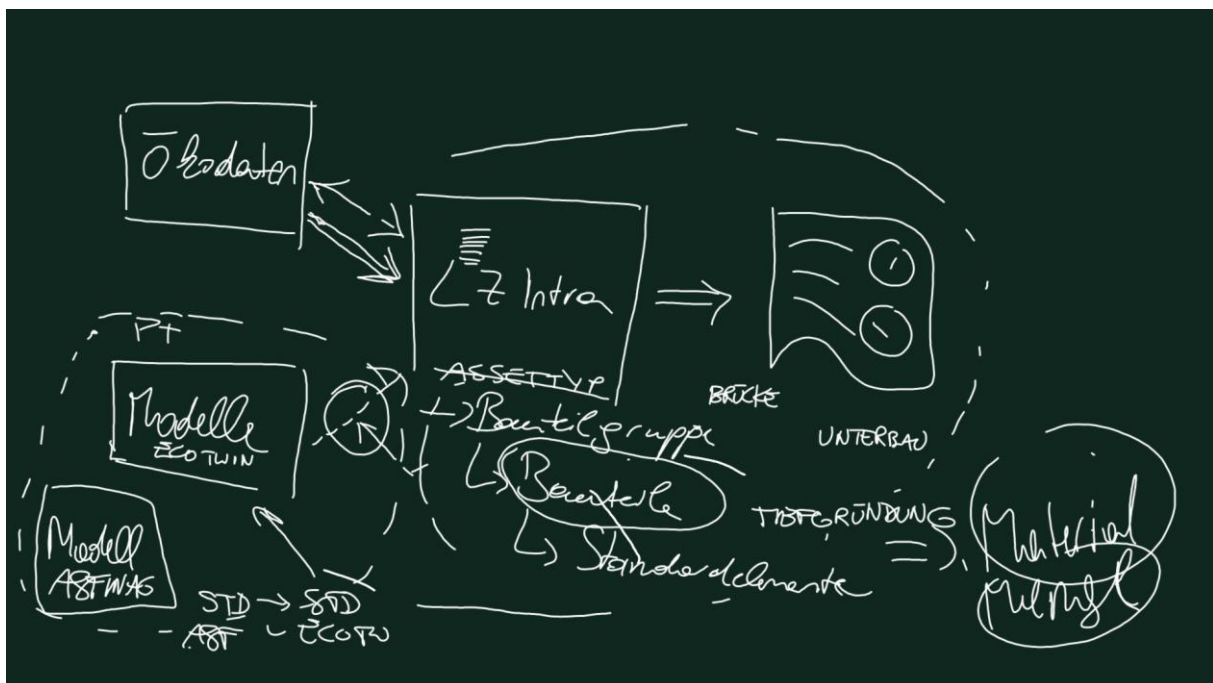 Ökodaten
LZ Intra
PT
Modelle
ECOTWIN
Modell
ASFINAG
STD → STD
ASF - ECOTW
ASSETTYP
↳ Bauteilgruppe
↳ Bauteile
↳ Standardelemente
BRÜCKE
UNTERBAU
TIEFGRÜNDUNG
⇒
Material
Menge